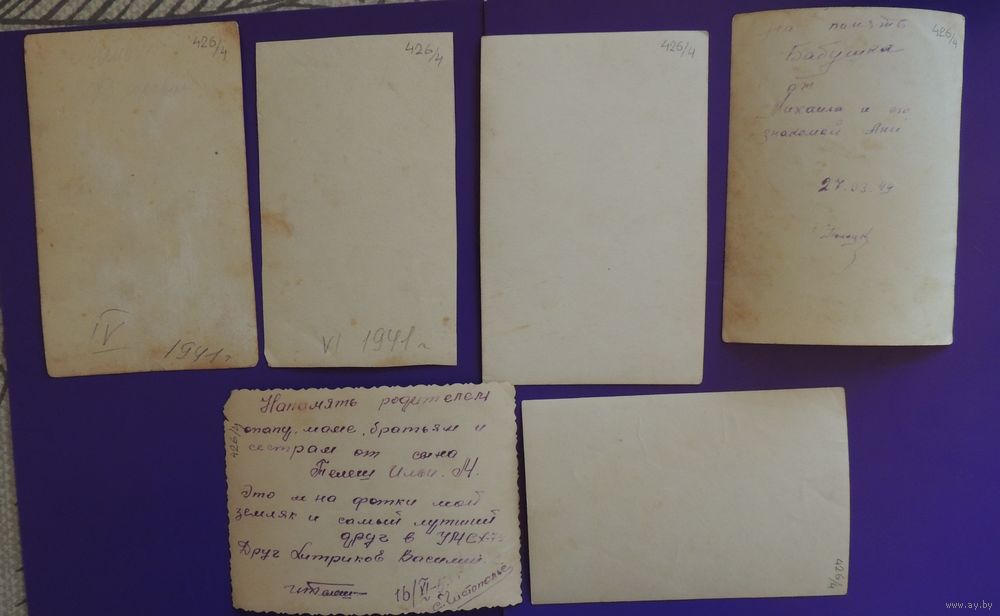 426/4
IV
1941 г
426/4
VI 1941 г
426/4
426/4
На память
Бабушке
от
Михаила и его
знакомой Ани
27.03.49
426/4
Напомять родителем
папу, маме, братьям и
сестрам от сына
Телеш Ильи. М.
Это м на фотки мой
земляк и самый лутший
друг в
Друг Хитриков Василий.
16/VI
с. Чистополье
426/4
www.ay.by